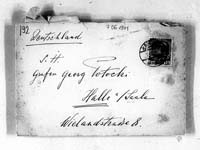 [92
7 06 1911
Deutschland
S. H.
Grafen Georg Potocki
Halle a/Saale
Wielandstraße 8.